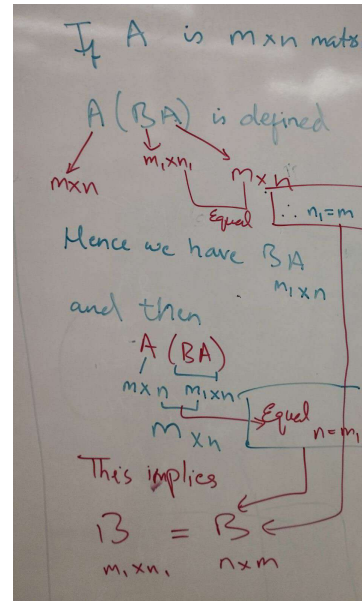 If A is m×n matr
A(BA) is defined
m×n m₁×n₁ m×n
Equal ∴ n₁=m
Hence we have BA
m₁×n
and then
A(BA)
m×n m₁×n
m×n Equal n=m₁
This implies
B = B
m₁×n₁ n×m